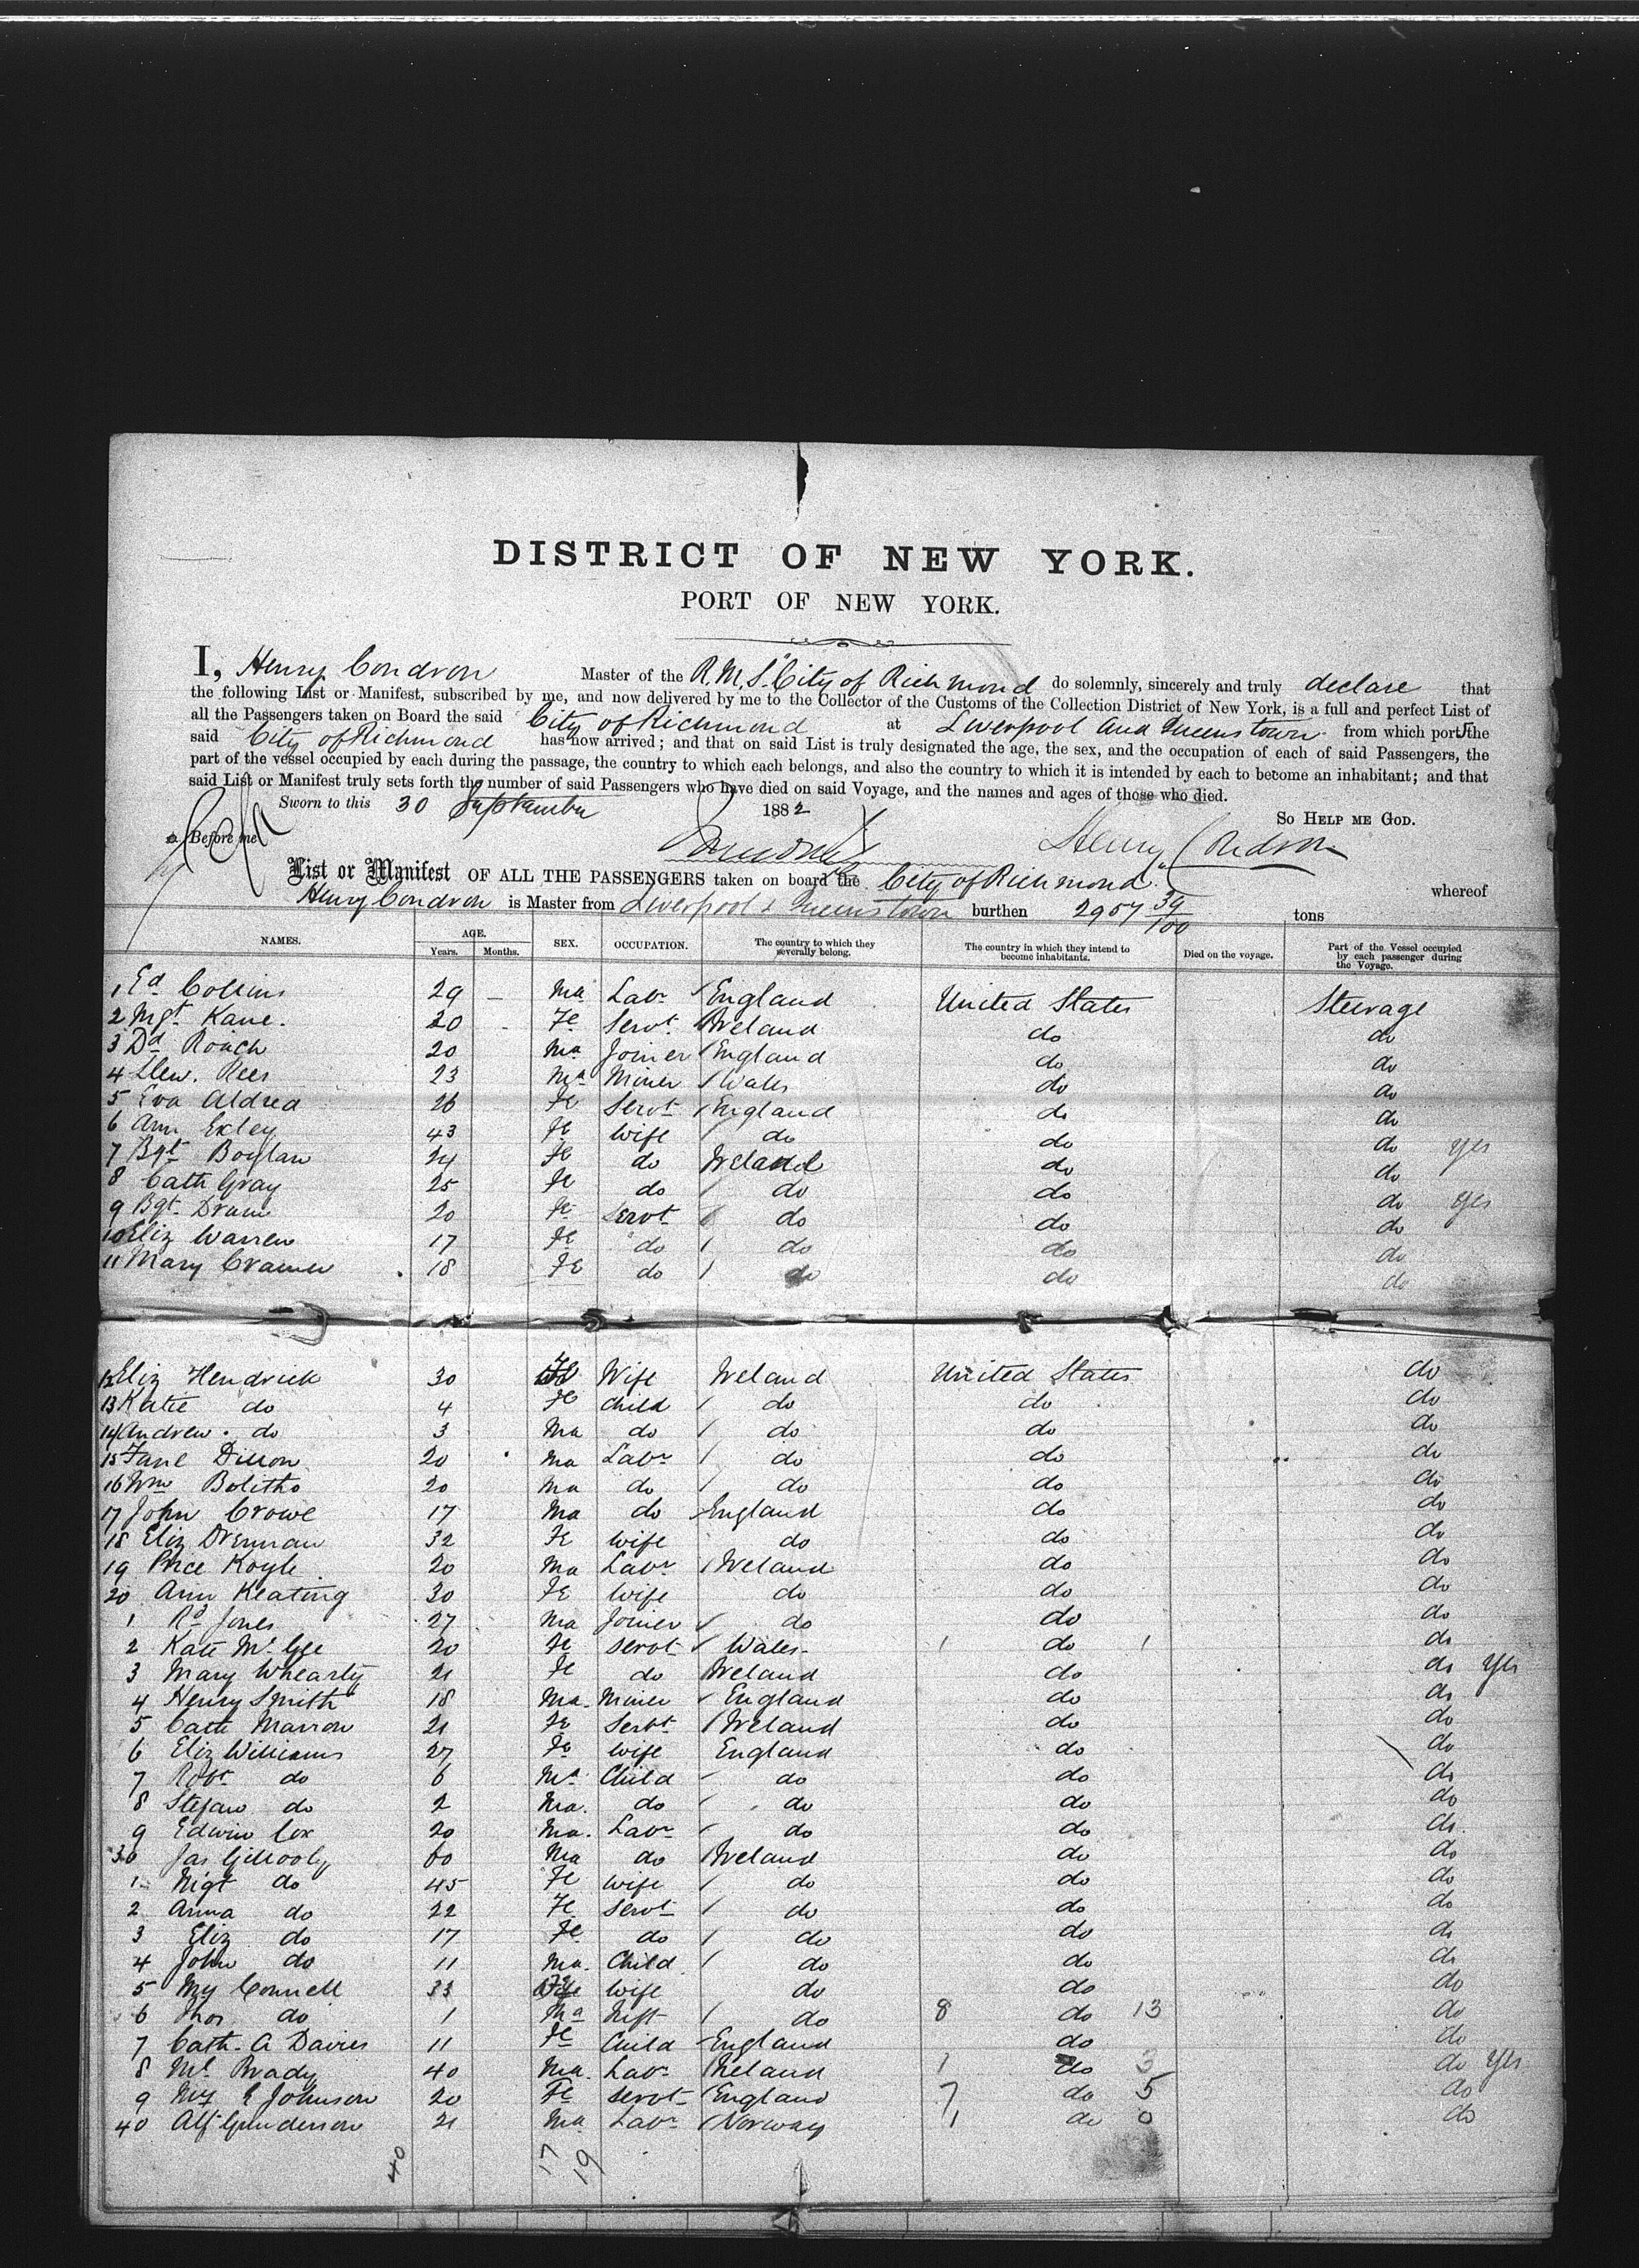 DISTRICT OF NEW YORK.
PORT OF NEW YORK.
I, Henry Condron Master of the R.M.S. "City of Richmond do solemnly, sincerely and truly declare that
the following List or Manifest, subscribed by me, and now delivered by me to the Collector of the Customs of the Collection District of New York, is a full and perfect List of
all the Passengers taken on Board the said City of Richmond at Liverpool and Queenstown from which port the
said City of Richmond has now arrived; and that on said List is truly designated the age, the sex, and the occupation of each of said Passengers, the
part of the vessel occupied by each during the passage, the country to which each belongs, and also the country to which it is intended by each to become an inhabitant; and that
said List or Manifest truly sets forth the number of said Passengers who have died on said Voyage, and the names and ages of those who died.
Sworn to this 30 September 1882
So HELP ME GOD.
Before me
Henry Condron
List or Manifest OF ALL THE PASSENGERS taken on board the City of Richmond whereof
Henry Condron is Master from Liverpool & Queenstown burthen 2957 39/100 tons
NAMES. AGE. Years. Months. SEX. OCCUPATION. The country to which they severally belong. The country in which they intend to become inhabitants. Died on the voyage. Part of the Vessel occupied by each passenger during the Voyage.
1 Ed Collins 29 – Ma Labr England United States Steerage
2 Mgt. Kane. 20 - Fe Servt. Ireland do do
3 Dd Roach 20 Ma Joiner England do do
4 Llew. Rees 23 Ma Miner Wales do do
5 Eva Aldred 26 Fe Servt England do do
6 Ann Exley 43 Fe Wife do do do Yes
7 Bgt Boylan 24 Fe do Ireland do do
8 Cath Gray 25 Fe do do do do Yes
9 Bgt. Drum 20 Fe Servt do do do
10 Eliz Warren 17 Fe do do do do
11 Mary Cramer 18 Fe do do do do
12 Eliz Hendrick 30 Fe Wife Ireland United States do
13 Katie do 4 Fe Child do do do
14 Andrew do 3 Ma do do do do
15 Dillon 20 Ma Labr do do do
16 Wm Bolitho 20 Ma do do do do
17 John Crowe 17 Ma do England do do
18 Eliz Drennan 32 Fe Wife do do do
19 Koyle 20 Ma Labr Ireland do do
20 Ann Keating 30 Fe Wife do do do
1 Rd Jones 27 Ma Joiner do do do
2 Kate Mc Gee 20 Fe Servt Wales 1 do 1 do
3 Mary Whearty 21 Fe do Ireland do do Yes
4 Henry Smith 18 Ma Miner England do do
5 Cath Marron 21 Fe Servt Ireland do do
6 Eliz Williams 27 Fe Wife England do do
7 Robt do 6 Ma Child do do do
8 Stefan do 2 Ma. do do do do
9 Edwin Cox 20 Ma. Labr do do do
30 Jas Gillooly 60 Ma do Ireland do do
1 Mgt do 45 Fe Wife do do do
2 Anna do 22 Fe Servt do do do
3 Eliz do 17 Fe do do do do
4 John do 11 Ma. Child do do do
5 My Connell 33 Fe Wife do do do
6 Thos do 1 Ma Inft do 8 do 13 do
7 Cath. A Davies 11 Fe Child England do do
8 Ml Brady 40 Ma. Labr Ireland 1 do 3 do Yes
9 My E Johnson 20 Fe Servt England 7 do 5 do
40 Alf Gunderson 21 Ma Labr Norway 1 do 0 do
40 17 19